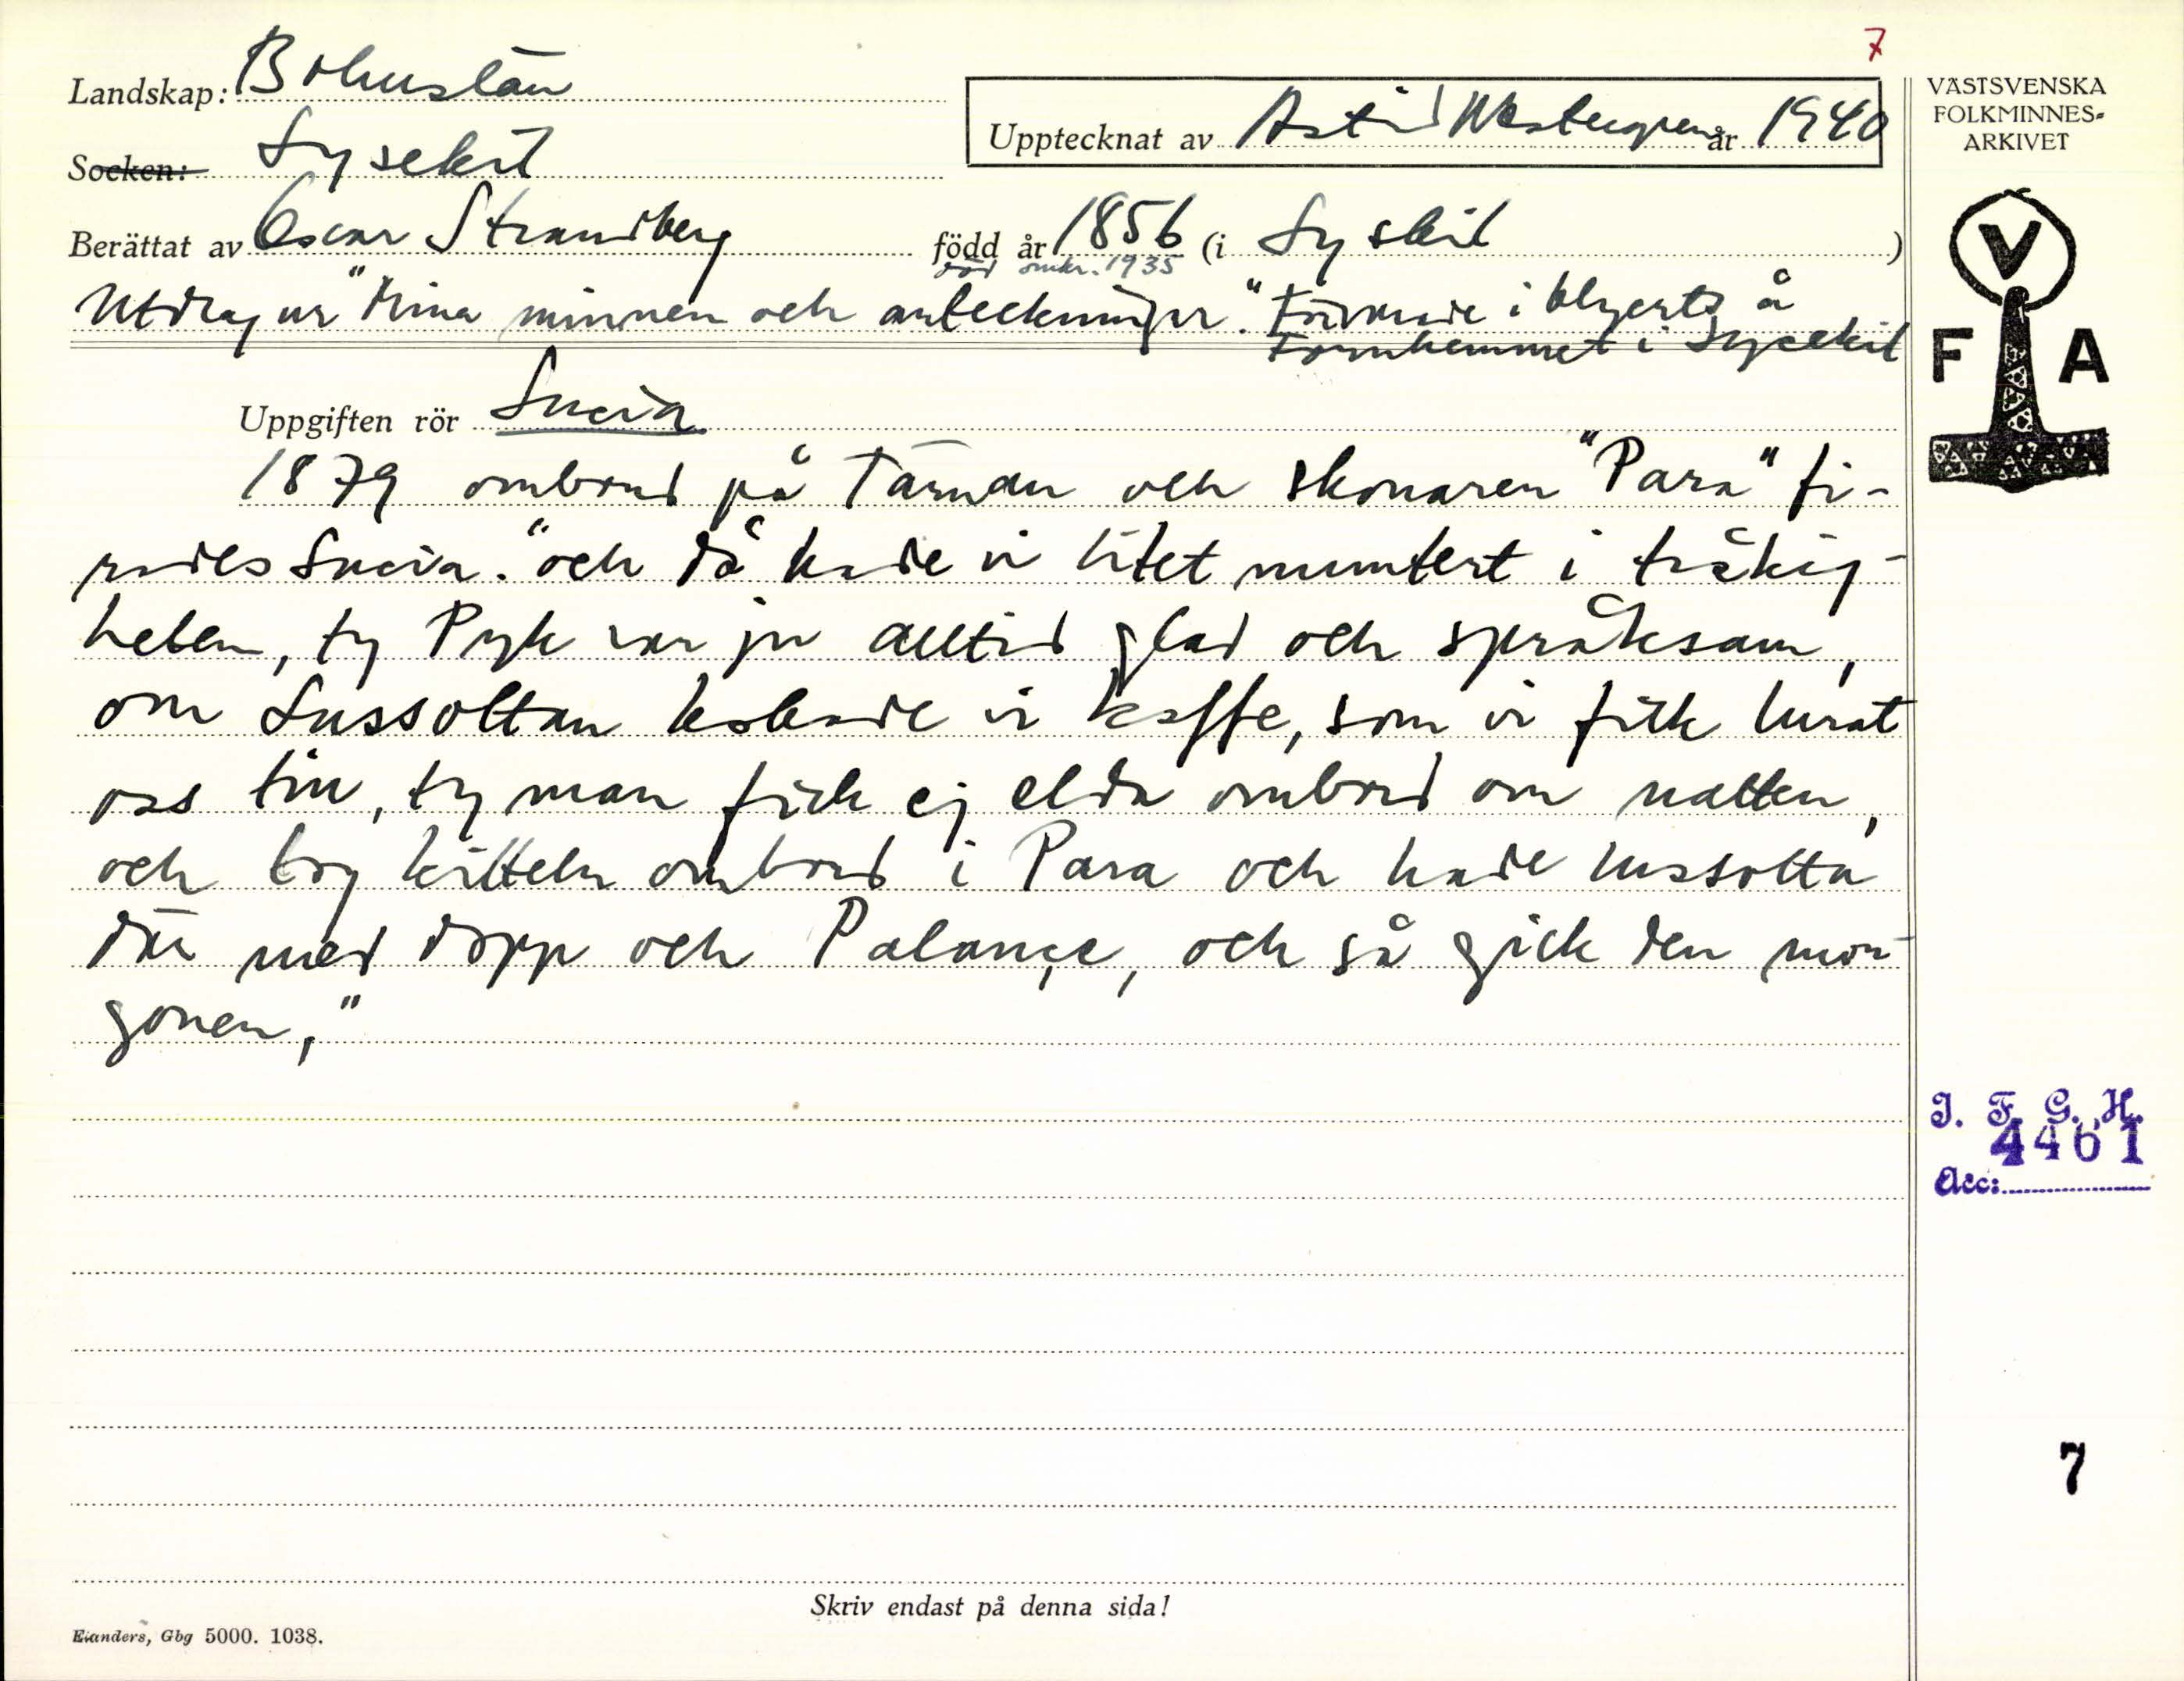 7
Landskap: Bohuslän
Upptecknat av Astrid Westergren år 1940
Socken: Lysekil
Berättat av Oscar Strandberg född år 1856 (i Lysekil)
död omkr. 1935
Utdrag ur "Mina minnen och anteckningar." Förvarade i blyerts å
Fornhemmet i Lysekil
Uppgiften rör Lucia
1879 ombord på Tärnan och skonaren "Para" fi-
rades Lucia. "och då hade vi litet muntert i tråkig-
heten, ty Pyk var ju alltid glad och språksam,
om Lussottan kokade vi kaffe, som vi fått lurat
oss till, ty man fick ej elda ombord om natten,
och tog kitteln ombord i Para och hade lussotta
där med dopp och Palançe, och så gick den mor-
gonen,"
VÄSTSVENSKA
FOLKMINNES-
ARKIVET
V
F A
I. F. G. H.
4461
Acc:
7
Skriv endast på denna sida!
Elanders, Gbg 5000. 1038.